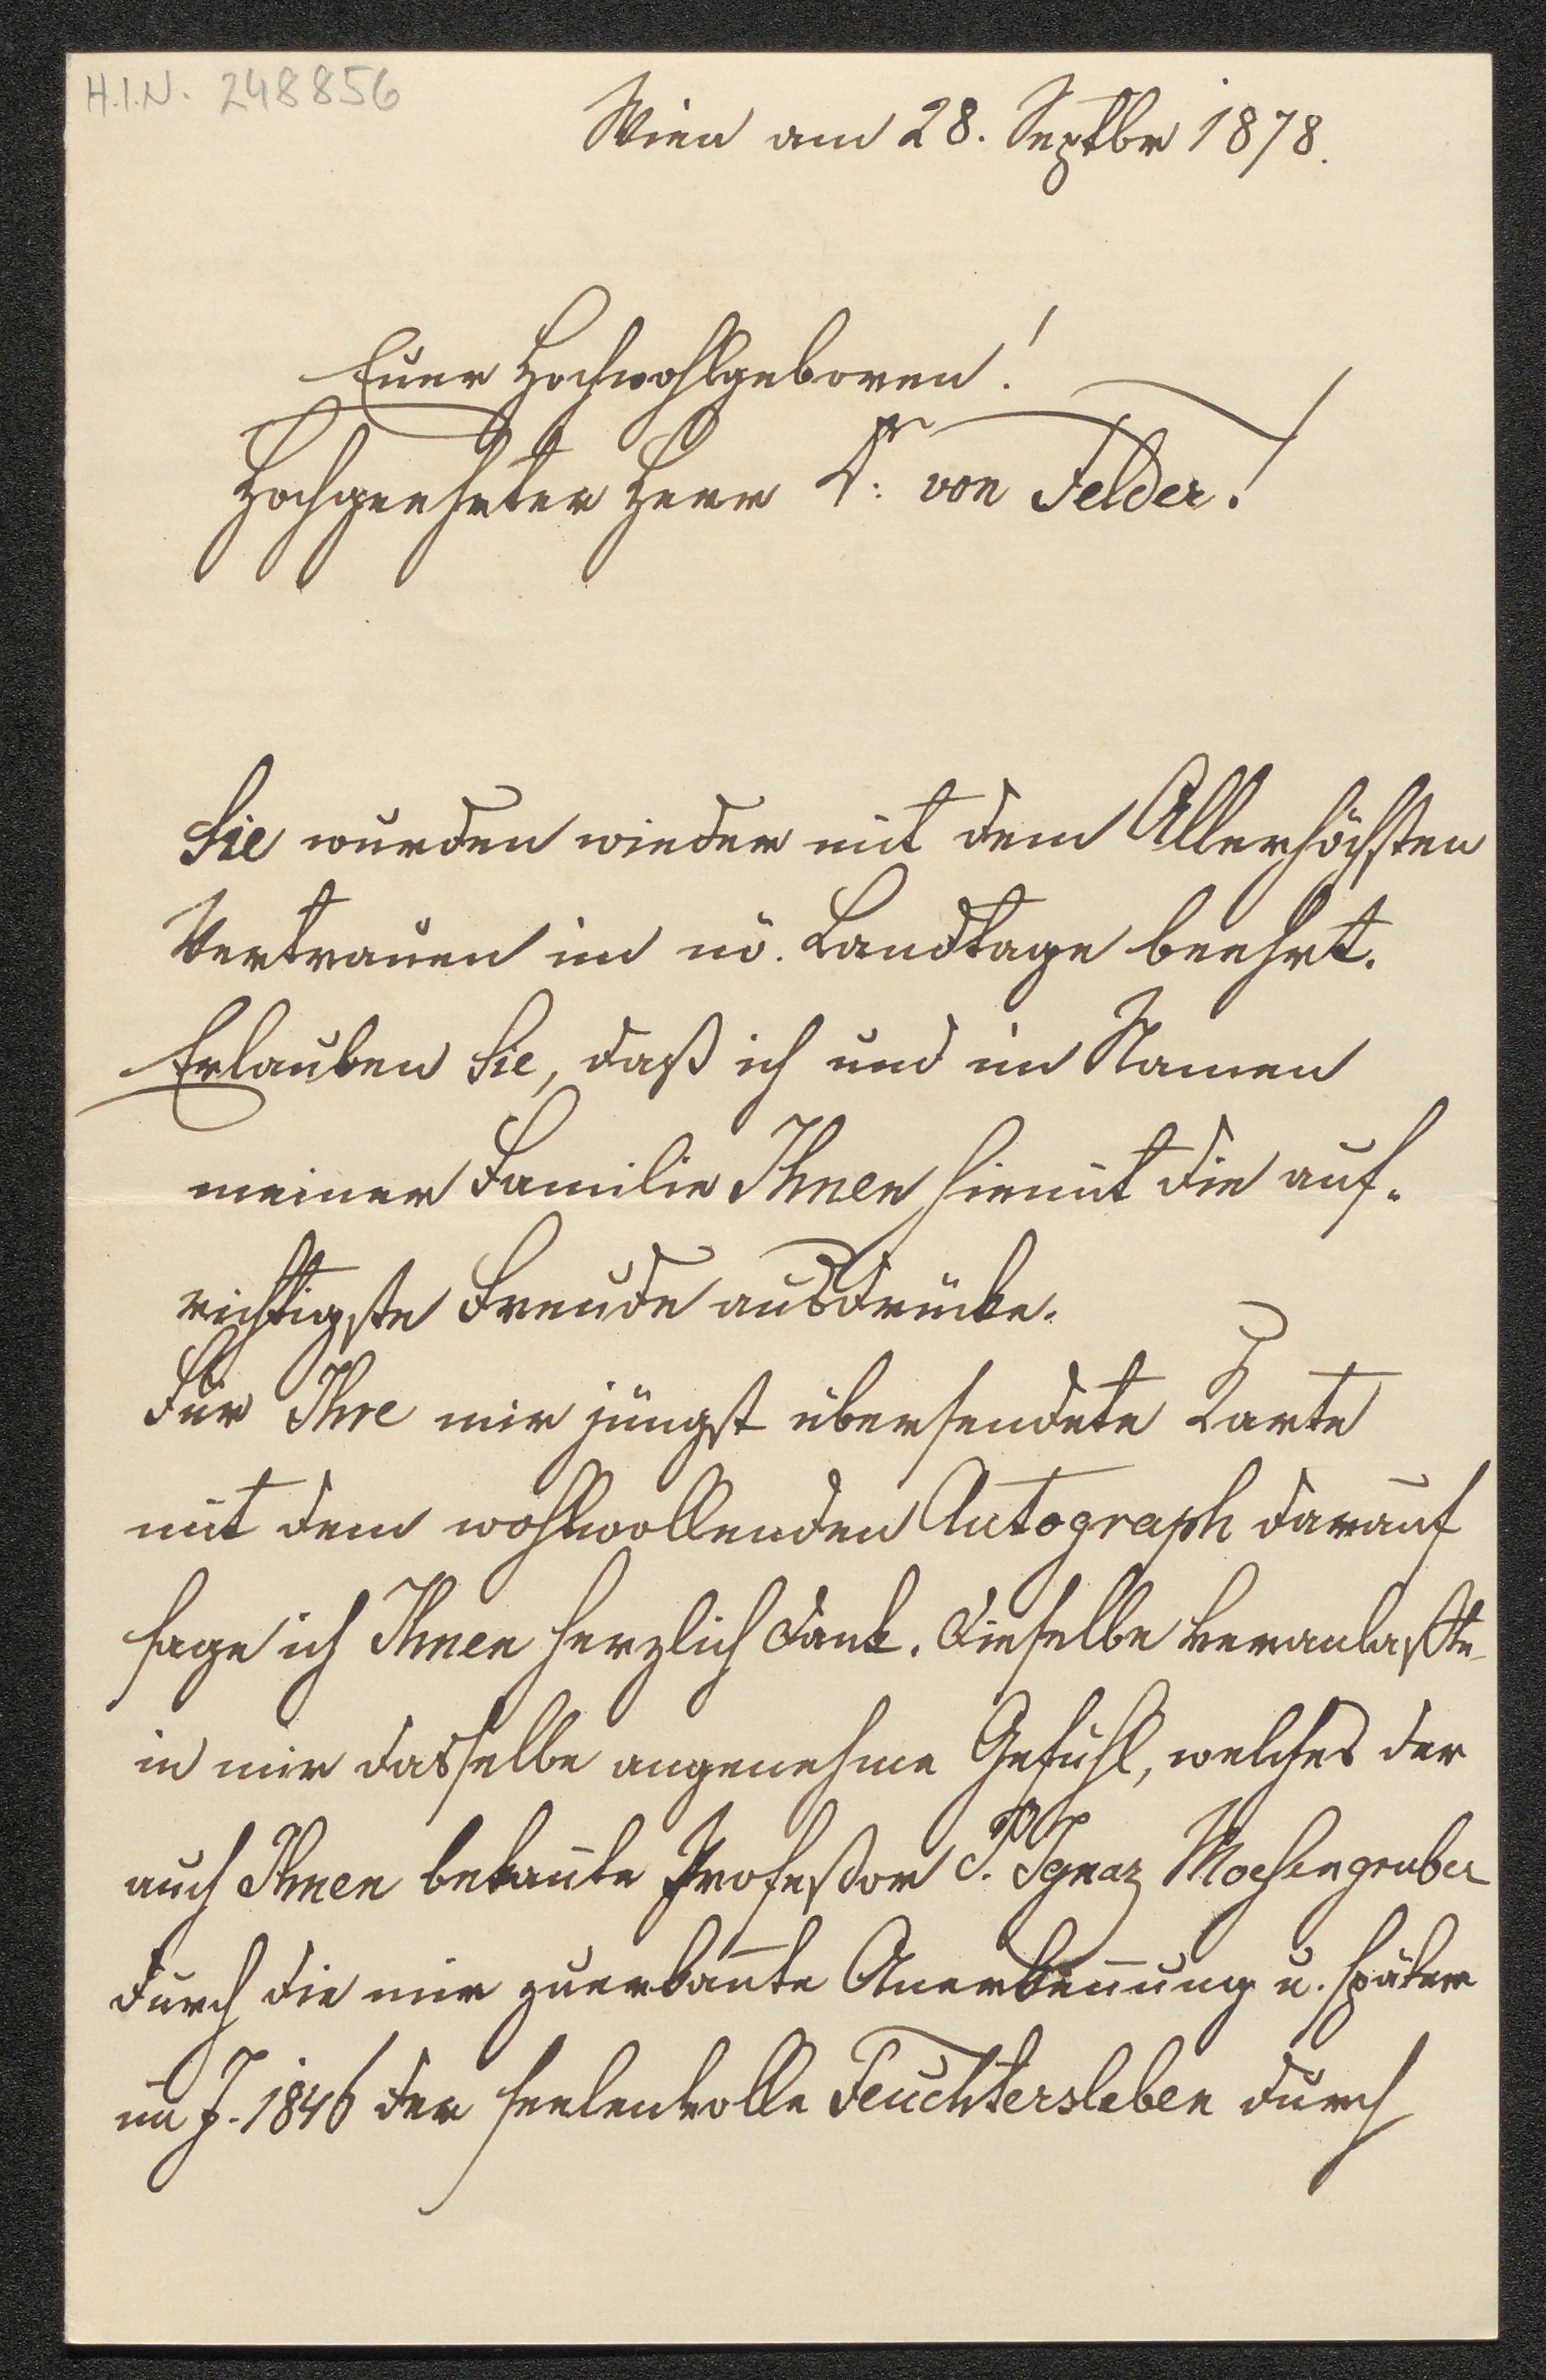 H.I.N. 248856
Wien am 28. Septbr 1878.
Euer Hochwohlgeboren!
Hochgeehrter Herr Dr: von Felder!
Sie wurden wieder mit dem Allerhöchsten
Vertrauen im nö. Landtage beehrt.
Erlauben Sie, daß ich und im Namen
meiner Familie Ihnen hiemit die auf-
richtigste Freude ausdrücke.
Für Ihre mir jüngst übersendete Karte
mit dem wohlwollenden Autograph darauf
sage ich Ihnen herzlich Dank. Dieselbe veranlaßte
in mir dasselbe angenehme Gefühl, welches der
auch Ihnen bekañte Profeßor P. Ignaz
durch die mir zuerkañte Anerkeñung u. später
im J. 1846 der seelenvolle Feuchtersleben durch